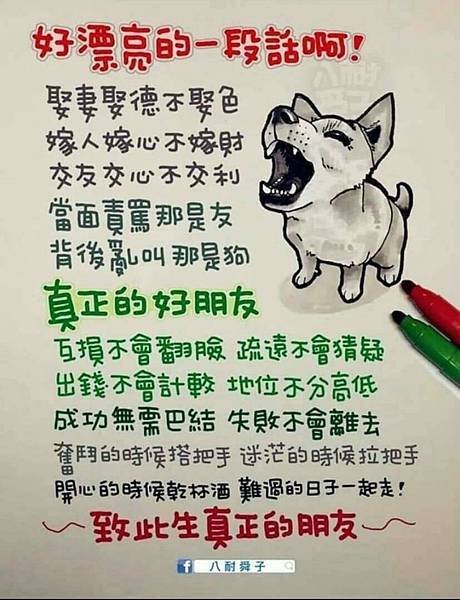 好漂亮的一段話啊!
娶妻娶德不娶色
嫁人嫁心不嫁財
交友交心不交利
當面責罵那是友
背後亂叫那是狗
真正的好朋友
互損不會翻臉 疏遠不會猜疑
出錢不會計較 地位不分高低
成功無需巴結 失敗不會離去
奮鬥的時候搭把手 迷茫的時候拉把手
開心的時候乾杯酒 難過的日子一起走!
致此生真正的朋友
八耐舜子
八耐舜子